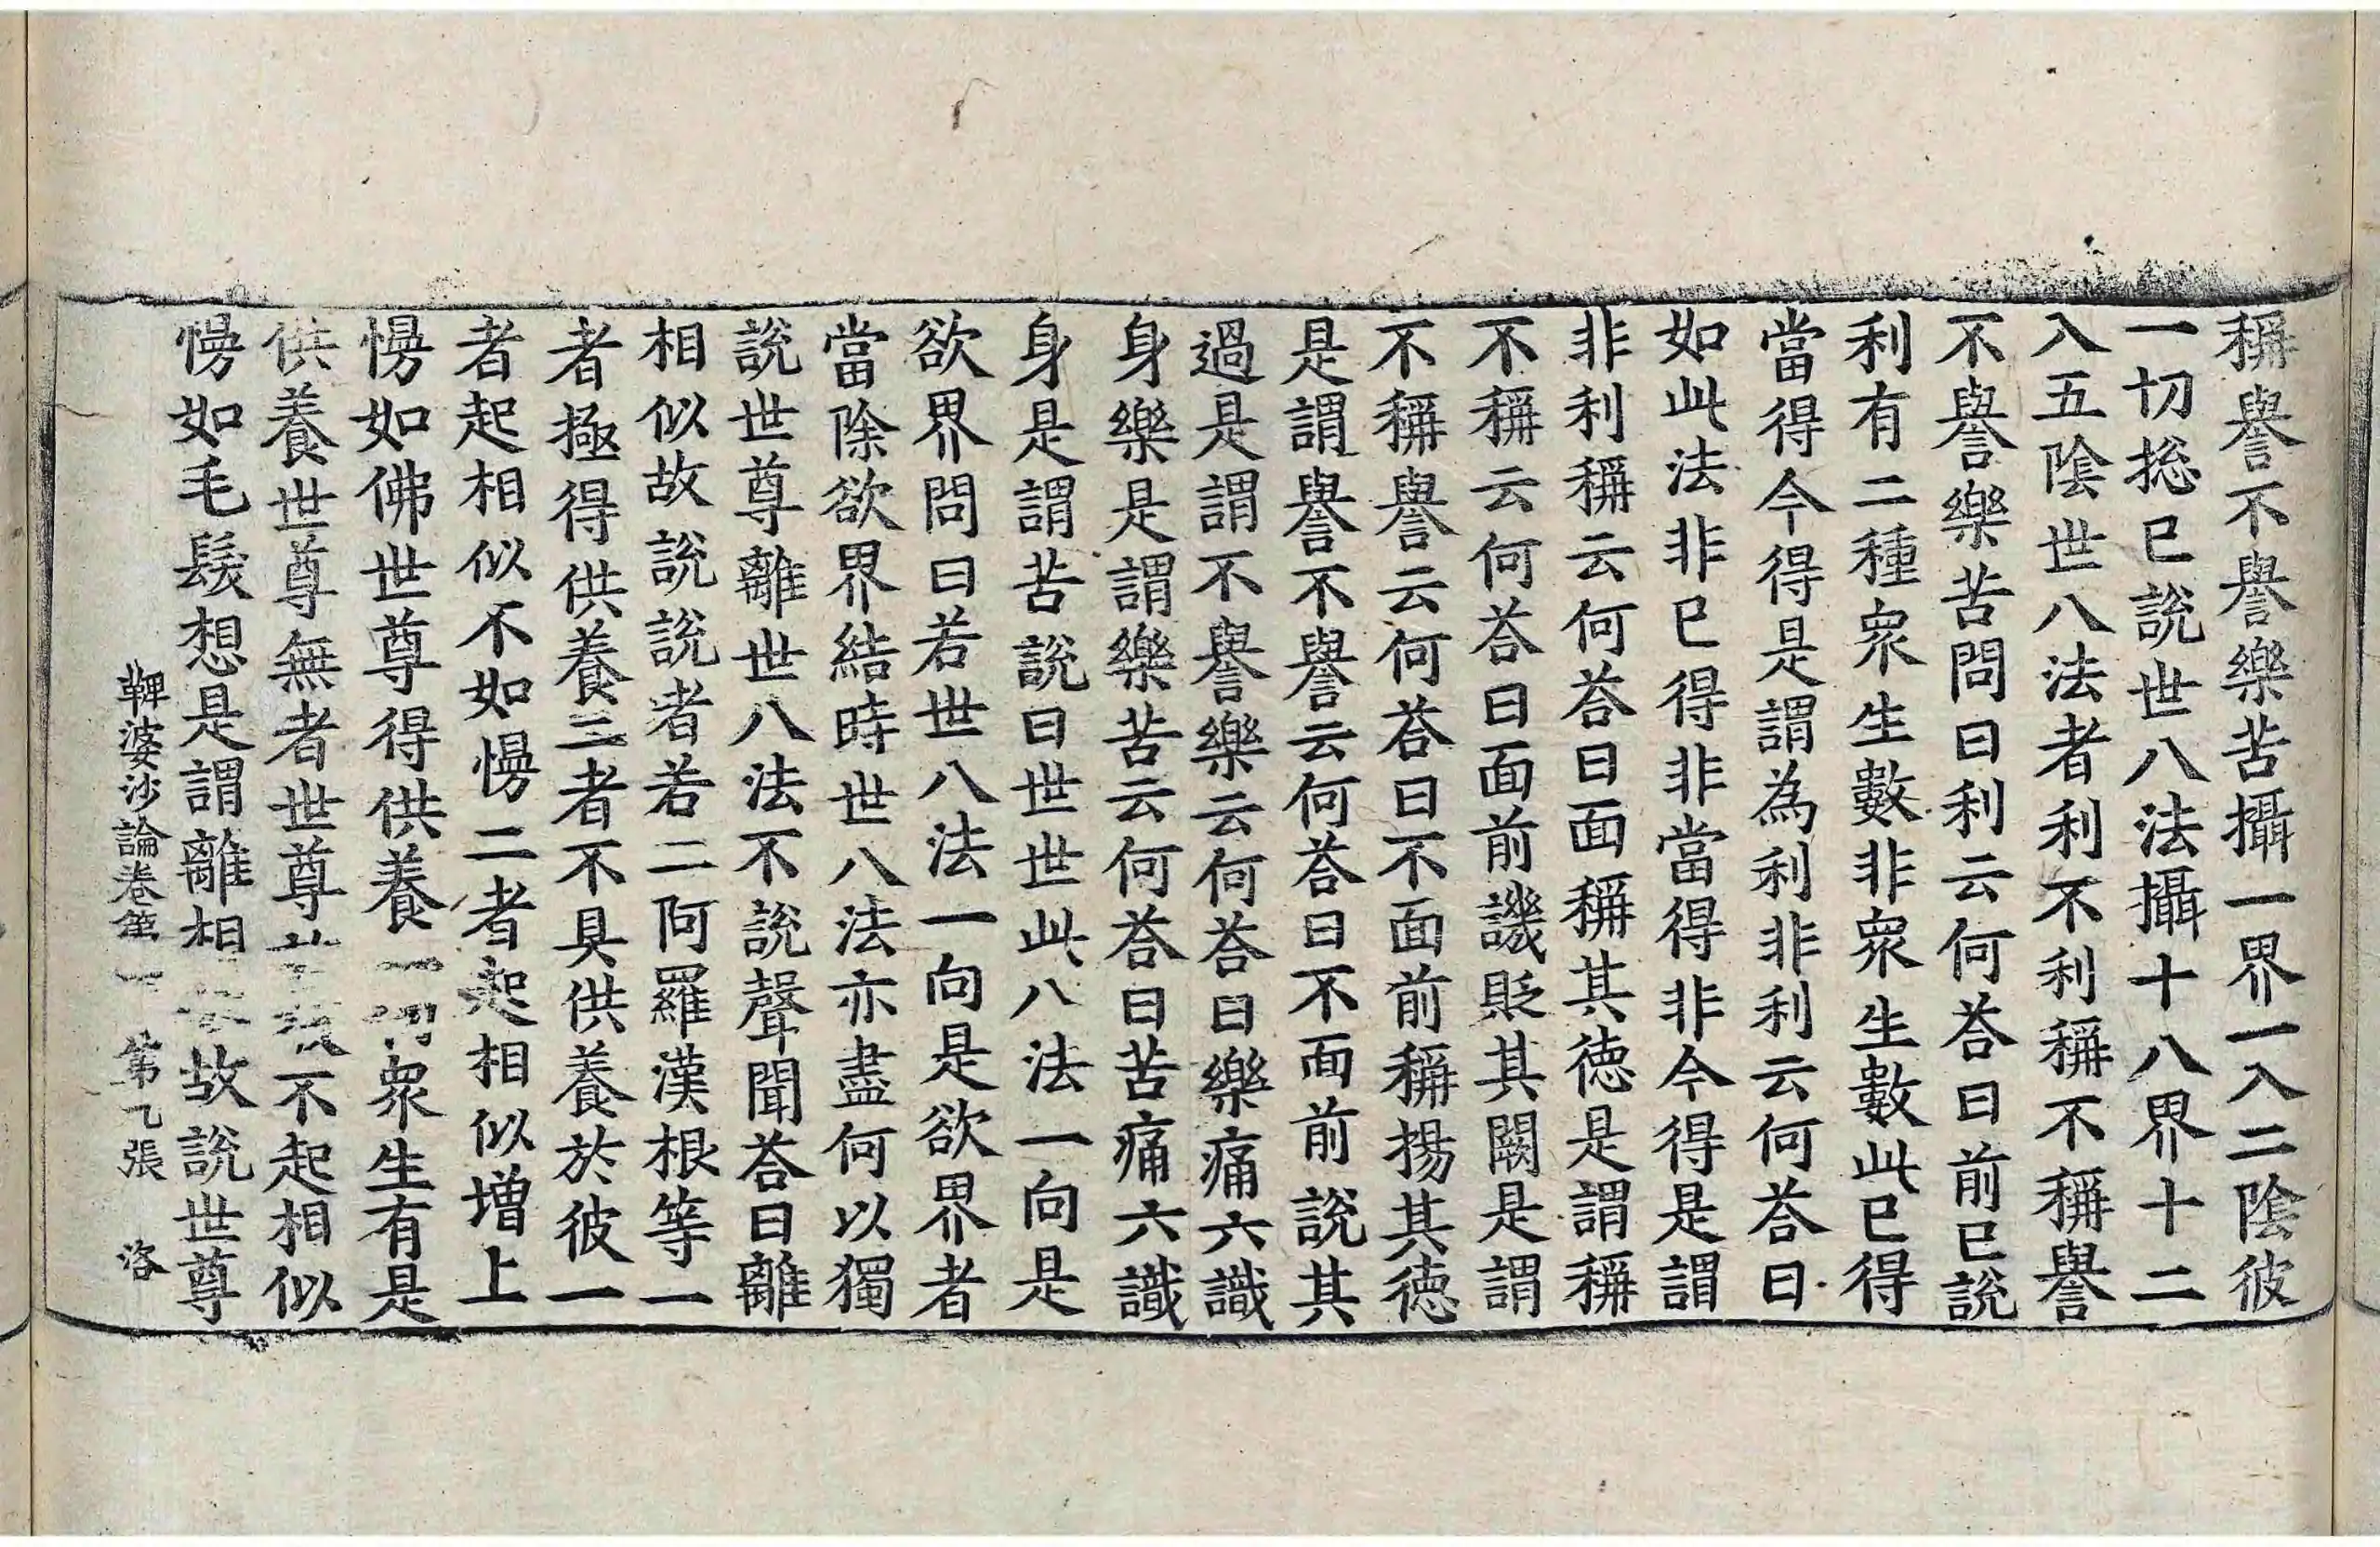 稱譽不譽樂苦攝一界一入二陰彼
一切捴已說世八法攝十八界十二
入五陰世八法者利不利稱不稱譽
不譽樂苦問曰利云何荅曰前已說
利有二種衆生數非衆生數此已得
當得今得是謂為利非利云何荅曰
如此法非已得非當得非今得是謂
非利稱云何荅曰面稱其徳是謂稱
不稱云何荅曰面前譏貶其闕是謂
不稱譽云何荅曰不面前稱揚其徳
是謂譽不譽云何荅曰不面前說其
過是謂不譽樂云何荅曰樂痛六識
身樂是謂樂苦云何荅曰苦痛六識
身是謂苦說曰世世此八法一向是
欲界問曰若世八法一向是欲界者
當除欲界結時世八法亦盡何以獨
說世尊離世八法不說聲聞荅曰離
相似故說說者若二阿羅漢根等一
者極得供養三者不具供養於彼一
者起相似不如慢二者起相似增上
慢如佛世尊得供養一切衆生有是
供養世尊無者世尊不起相似
慢如毛髮想是謂離相故說世尊
鞞婆沙論卷第一 第七張 洛